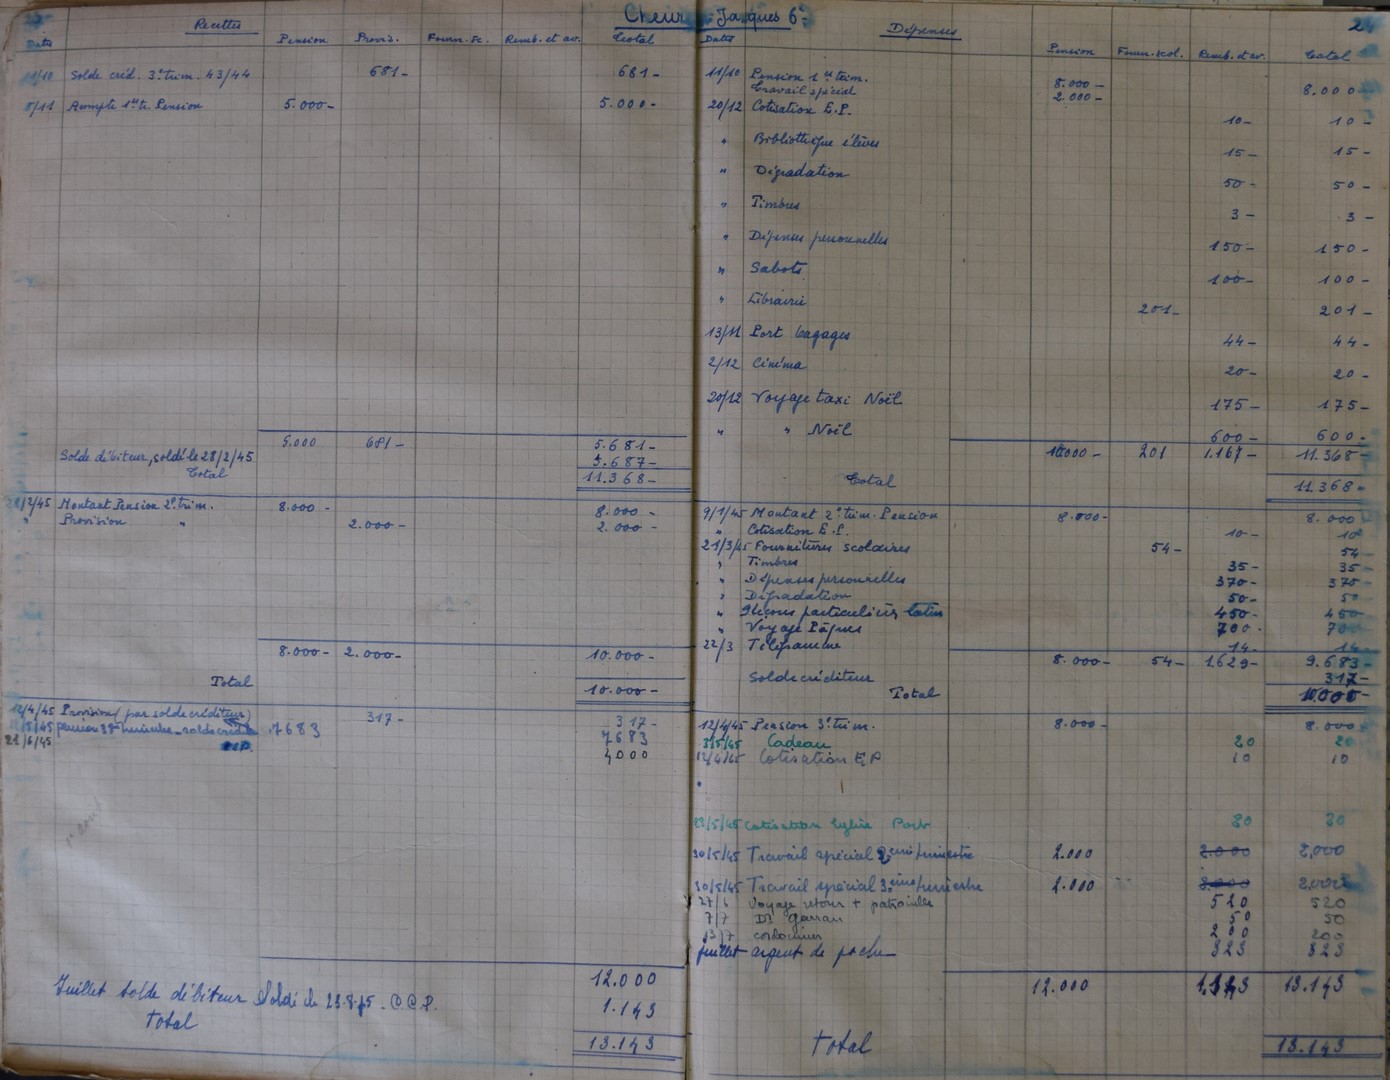 Jacques 6e
Recettes
Dates Pension Provis. Fourn. sc. Remb. et av. Total
11/10 Solde créd. 3e trim. 43/44 681- 681-
8/11 Acompte 1er tr. Pension 5.000- 5.000-
5.000 681- 5.681-
Solde débiteur, soldé le 28/2/45 5.687-
Total 11.368-
28/2/45 Montant Pension 2e trim. 8.000- 8.000-
" Provision " 2.000- 2.000-
8.000- 2.000- 10.000-
Total 10.000-
12/4/45 Provision (par solde créditeur) 317- 317-
12/5/45 pension 3e 7683 7683
21/6/45 4000
12.000
Juillet solde débiteur Soldé le 23.8.45 - C.C.P. 1.143
Total 13.143
2
Dépenses
Dates Pension Fourn. scol. Remb. et av. Total
11/10 Pension 1er trim. 8.000- 8.000-
Travail spécial 2.000-
20/12 Cotisation E.P. 10- 10-
" Bibliothèque élèves 15- 15-
" Dégradation 50- 50-
" Timbres 3- 3-
" Dépenses personnelles 150- 150-
" Sabots 100- 100-
" Librairie 201- 201-
13/11 Port bagages 44- 44-
2/12 Cinéma 20- 20-
20/12 Voyage taxi Noël 175- 175-
" " Noël 600- 600-
10.000- 201 1.167- 11.368-
Total 11.368-
9/1/45 Montant 2e trim. Pension 8.000- 8.000
" Cotisation E.P. 10- 10
21/3/45 Fournitures scolaires 54- 54-
" Timbres 35- 35-
" Dépenses personnelles 370- 370-
" Dégradation 50- 50
" 9 leçons particulières latin 450- 450
" Voyage Pâques 700- 700
22/3 Télégramme 14- 14-
8.000- 54- 1.629- 9.683-
Solde créditeur 317-
Total 10.000-
12/4/45 Pension 3e trim. 8.000- 8.000-
3/5/45 Cadeau 20 20
12/4/45 Cotisation E.P 10 10
23/5/45 Cotisation Eglise
30/5/45 Travail spécial 2eme trimestre 2.000 2.000 2,000
30/5/45 Travail spécial 3eme trimestre 2.000 2.000 2,000
27/6 Voyage retour + patrouille 520 520
7/7 Dr 50 50
13/7 cordonnier 200 200
juillet argent de poche 323 323
12.000 1.143 13.143
Total 13.143